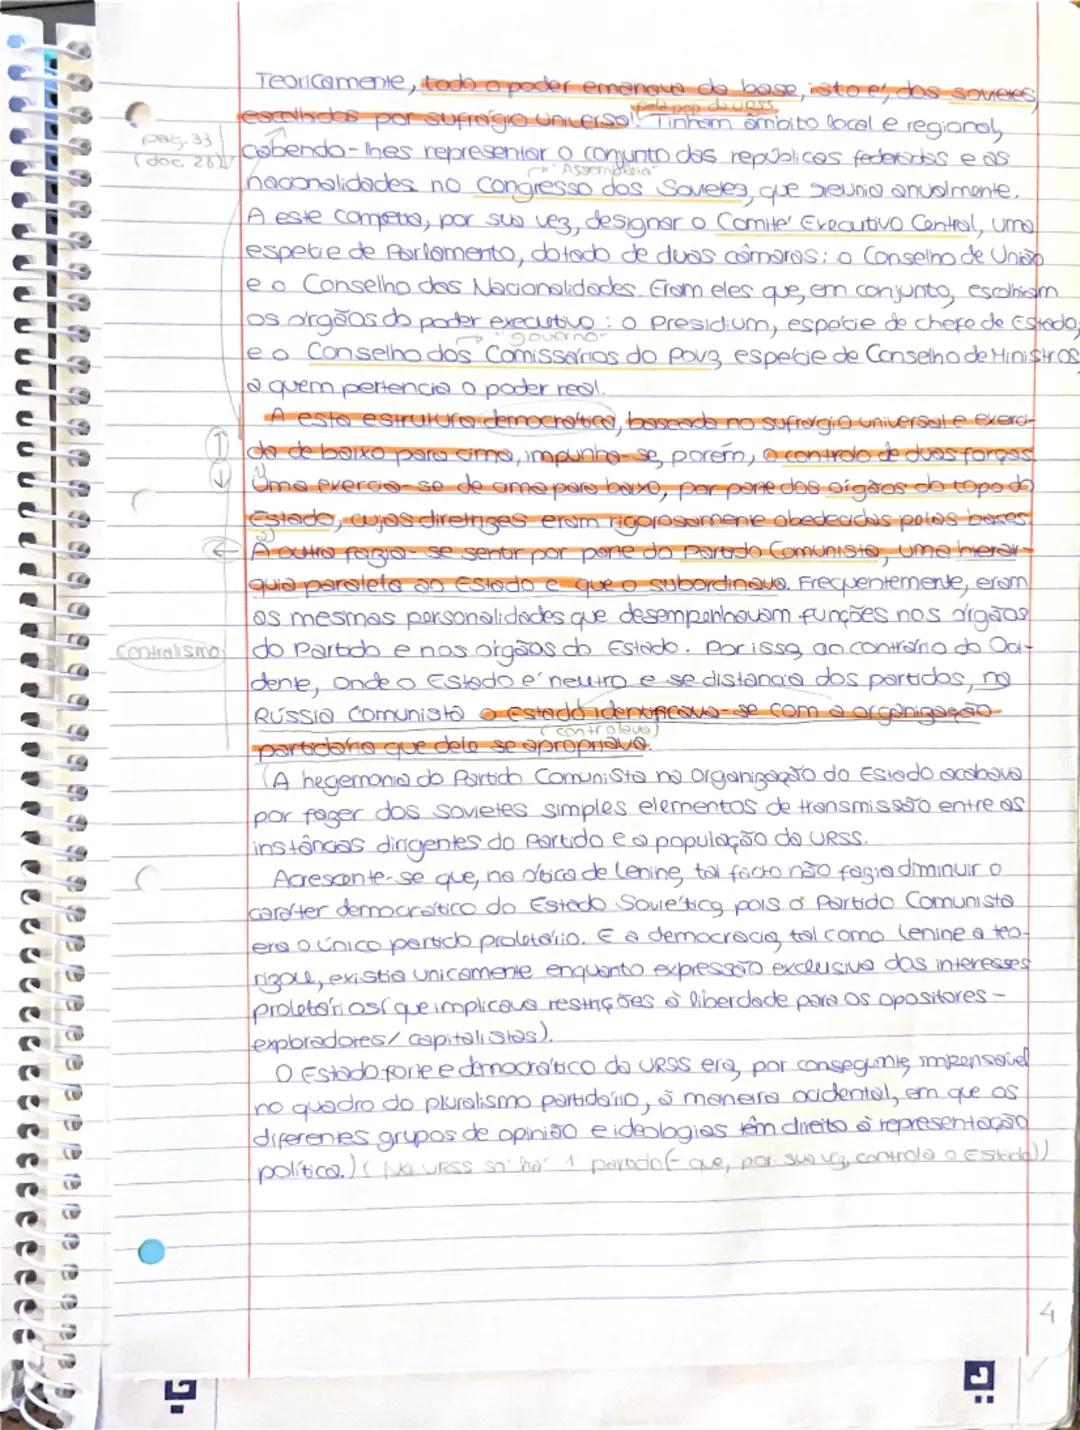 Teoricamente, todo o poder emanava da base, isto é, dos sovietes,
pela pop da URSS
escolhidos por sufrágio universal. Tinham âmbito local e regional,
pag. 33
(doc 28)
cabendo-lhes representar o conjunto das repúblicas federadas e as
"Assembleia"
nacionalidades no Congresso dos Sovietes, que reunia anualmente.
A este competia, por sua vez, designar o Comité Executivo Central, uma
espécie de Parlamento, dotado de duas câmaras: o Conselho de União
e o Conselho das Nacionalidades. Eram eles que, em conjunto, escolhiam
os órgãos do poder executivo: o Presidium, espécie de chefe de Estado,
"governo"
e o Conselho dos Comissários do Povo, espécie de Conselho de Ministros,
a quem pertencia o poder real.
A esta estrutura democrática, baseada no sufrágio universal e exerci-
da de baixo para cima, impunha-se, porém, o controlo de duas forças.
1)
Uma exercia-se de cima para baixo, por parte dos órgãos do topo do
Estado, cujas diretrizes eram rigorosamente obedecidas pelas bases.
2)
A outra fazia-se sentir por parte do Partido Comunista, uma hierar-
quia paralela ao Estado e que o subordinava. Frequentemente, eram
as mesmas personalidades que desempenhavam funções nos órgãos
centralismo
do Partido e nos órgãos do Estado. Por isso, ao contrário do Oci-
dente, onde o Estado é neutro e se distancia dos partidos, na
Rússia Comunista o Estado identificava-se com a organização
(controlava)
partidária que dele se apropriava.
(A hegemonia do Partido Comunista na organização do Estado acabava
por fazer dos sovietes simples elementos de transmissão entre as
instâncias dirigentes do Partido e a população da URSS.
Acrescente-se que, na ótica de Lenine, tal facto não fazia diminuir o
caráter democrático do Estado Soviético, pois o Partido Comunista
era o único partido proletário. E a democracia, tal como Lenine a teo-
rizou, existia unicamente enquanto expressão exclusiva dos interesses
proletários (que implicava restrições à liberdade para os opositores -
exploradores/ capitalistas).
O Estado forte e democrático da URSS era, por conseguinte, impensável
no quadro do pluralismo partidário, à maneira ocidental, em que os
diferentes grupos de opinião e ideologias têm direito à representação
política.) (Na URSS só há 1 partido (- que, por sua vez, controla o Estado))
4